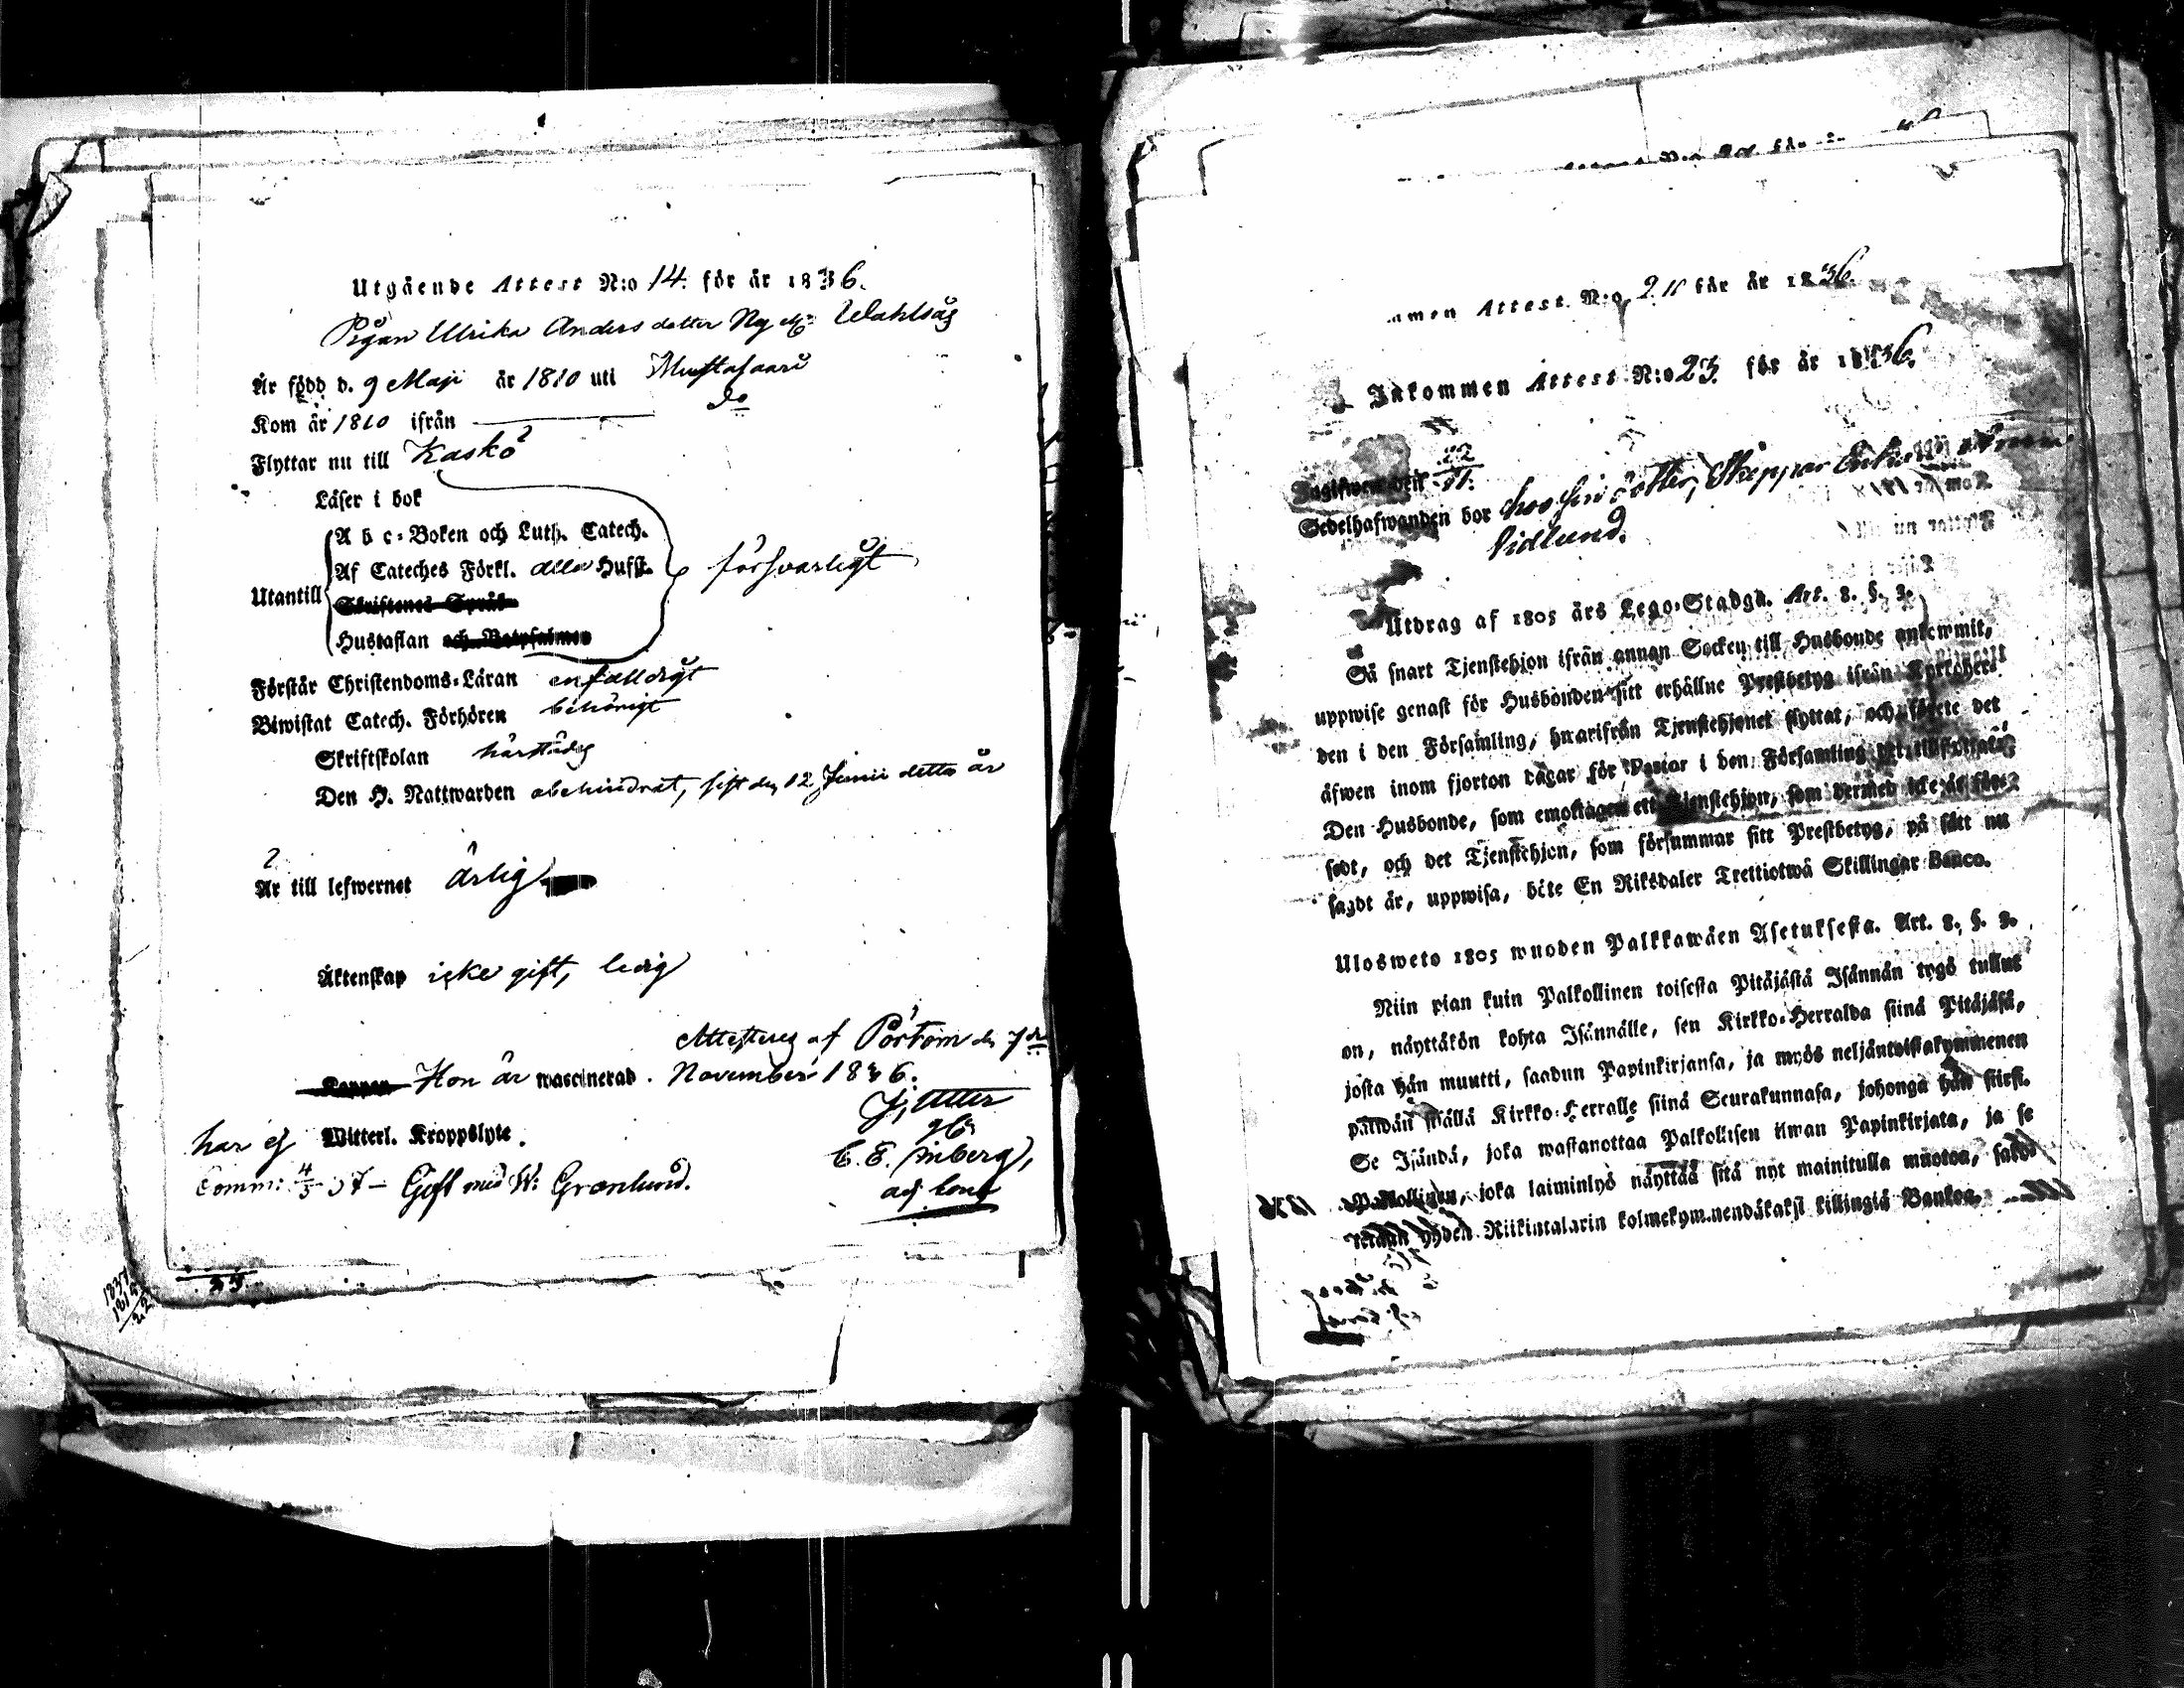 Utgående Attest N:o 14. för år 1836.
Pigan Ulrika Andersdotter Ny Wahlsåg
Är född d. 9 Maji år 1810 uti Mustasaari
Kom år 1810 ifrån do
Flyttar nu till Kaskö
Läser i bok
Abc-Boken och Luth. Catech.
Af Cateches Förkl. alla Hufst. försvarligt
Utantill
Skriftenes Språk
Hustaflan och Botpsalmen
Förstår Christendoms-Läran enfalldigt
Biwistat Catech. Förhören behörigt
Skriftskolan härstädes
Den H. Nattwarden obehindrat, sist den 12 Junii detta år
Är till lefwernet ärlig
Äktenskap icke gift, ledig
Attesteras af Pörtom den 7de
Koppor Hon är waccinerad. November 1836.
har ej Witterl. Kroppslyte.
Comm: 4/3 37 - Gift med W: Grönlund.
33
1837
181
22
Attest N:o för år 36
Inkommen Attest N:o 23. för år 1836.
22
11.
Sedelhafwanden bor hos sin dotter, Skeppar Enkan
Sidlund.
Utdrag af 1805 års Lego-Stadga. Art. 8. §. 3.
Så snart Tjenstehjon ifrån annan Socken till Husbonde ankommit,
uppwise genast för Husbonden sitt erhållne Prestbetyg ifrån Kyrkoher-
den i den Församling, hwarifrån Tjenstehjonet flyttat, och förete det
äfwen inom fjorton dagar för Pastor i den Församling
Den Husbonde, som emottager ett Tjenstehjon, som dermed icke är för-
sedt, och det Tjenstehjon, som försummar sitt Prestbetyg, på sätt nu
sagdt är, uppwisa, böte En Riksdaler Trettiotwå Skillingar Banco.
Ulosweto 1805 wuoden Palkkawäen Asetuksesta. Art. 8. §. 3.
Niin pian kuin Palkollinen toisesta Pitäjästä Isännän tygö tullut
on, näyttäkön kohta Isännälle, sen Kirkko-Herralda siinä Pitäjäsä,
josta hän muutti, saadun Papinkirjansa, ja myös neljäntoistakymmenen
päiwän sisällä Kirkko-Herralle siinä Seurakunnasa, johonga hän siirsi.
Se Isändä, joka wastanottaa Palkollisen ilman Papinkirjata, ja se
Palkollinen, joka laiminlyö näyttää sitä nyt mainitulla muoton,
yhden Riikintalarin kolmekymmendäkaksi killingiä Bankoa.